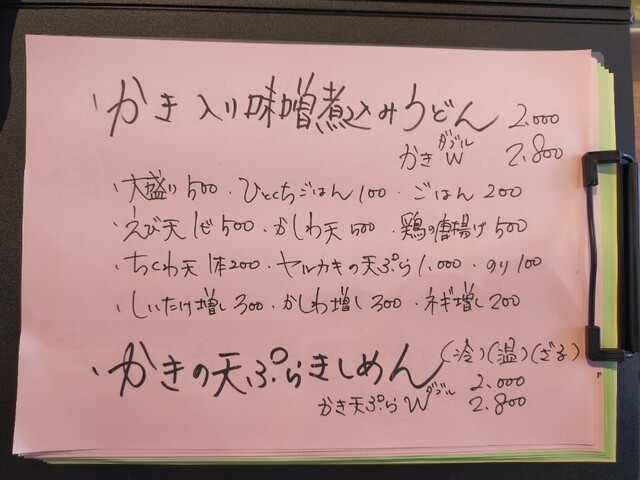 かき入り味噌煮込みうどん 2.000
かきW ダブル 2.800
大盛り500・ひとくちごはん100・ごはん200
えび天1匹500・かしわ天500・鶏の唐揚げ500
ちくわ天1本200・ヤルカキの天ぷら1.000・のり100
しいたけ増し300・かしわ増し300・ネギ増し200
かきの天ぷらきしめん (冷)(温)(ざる)
2.000
かき天ぷらW ダブル 2.800